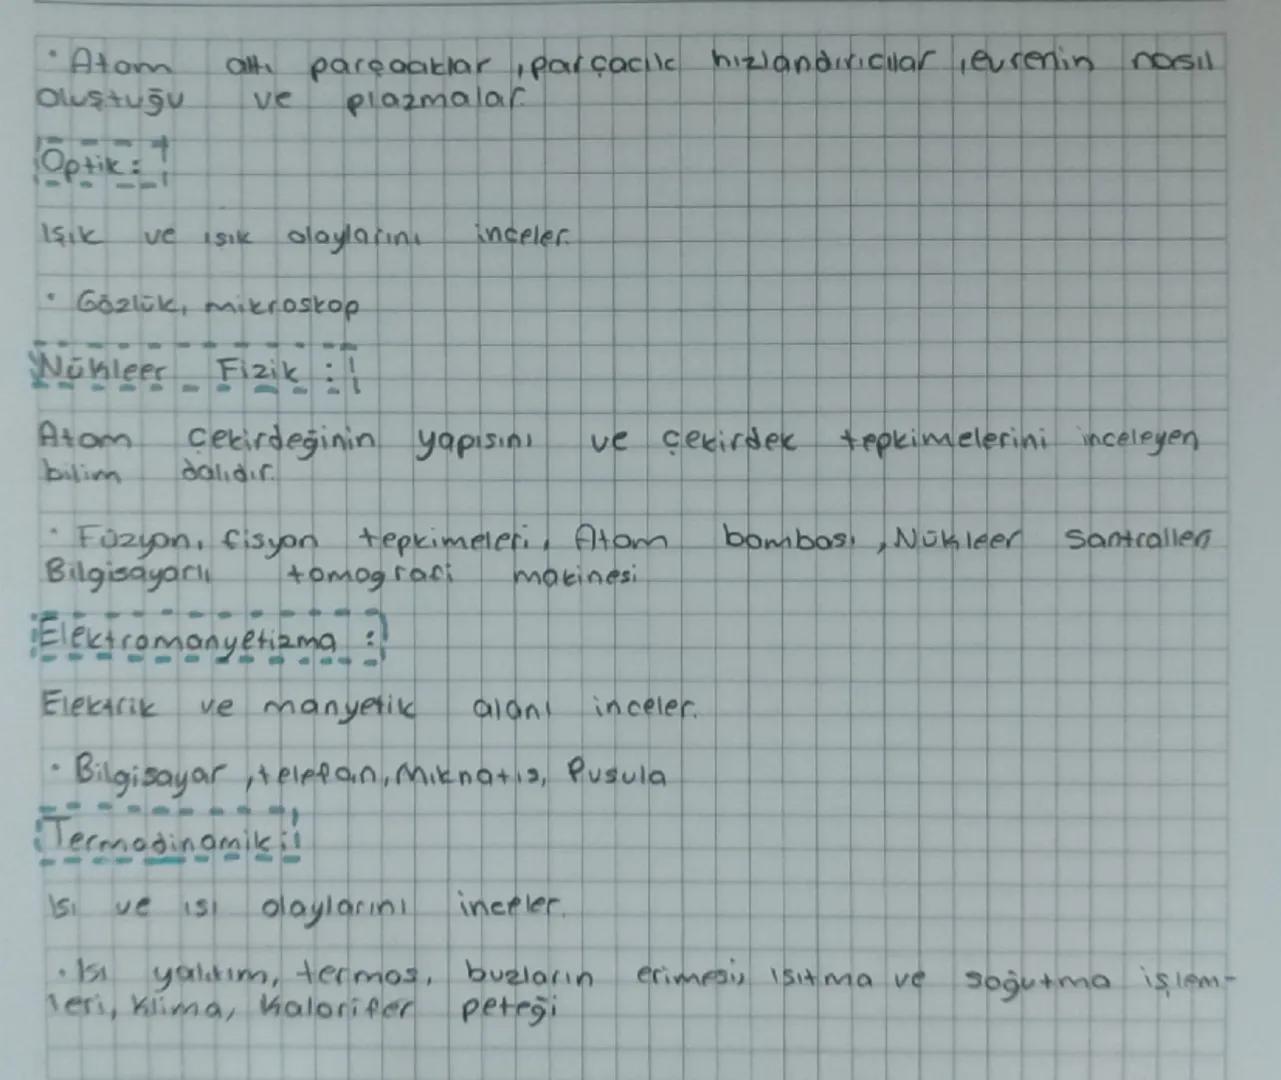 · Atom altı parçacıklar, parçacık hızlandırıcılar, evrenin nasıl
oluştuğu ve plazmalar.
Optik:
Işık ve ışık olaylarını inceler.
· Gözlük, mikroskop
Nükleer Fizik:
Atom çekirdeğinin yapısını ve çekirdek tepkimelerini inceleyen
bilim dalıdır.
· Füzyon, fisyon tepkimeleri, Atom bombası, Nükleer Santralleri
Bilgisayarlı tomografi makinesi
Elektromanyetizma:
Elektrik ve manyetik alanı inceler.
· Bilgisayar, telefon, Mıknatıs, Pusula
Termodinamik:
Isı ve ısı olaylarını inceler.
· Isı yalıtım, termos, buzların erimesi, ısıtma ve soğutma işlem-
leri, Klima, Kalorifer peteği